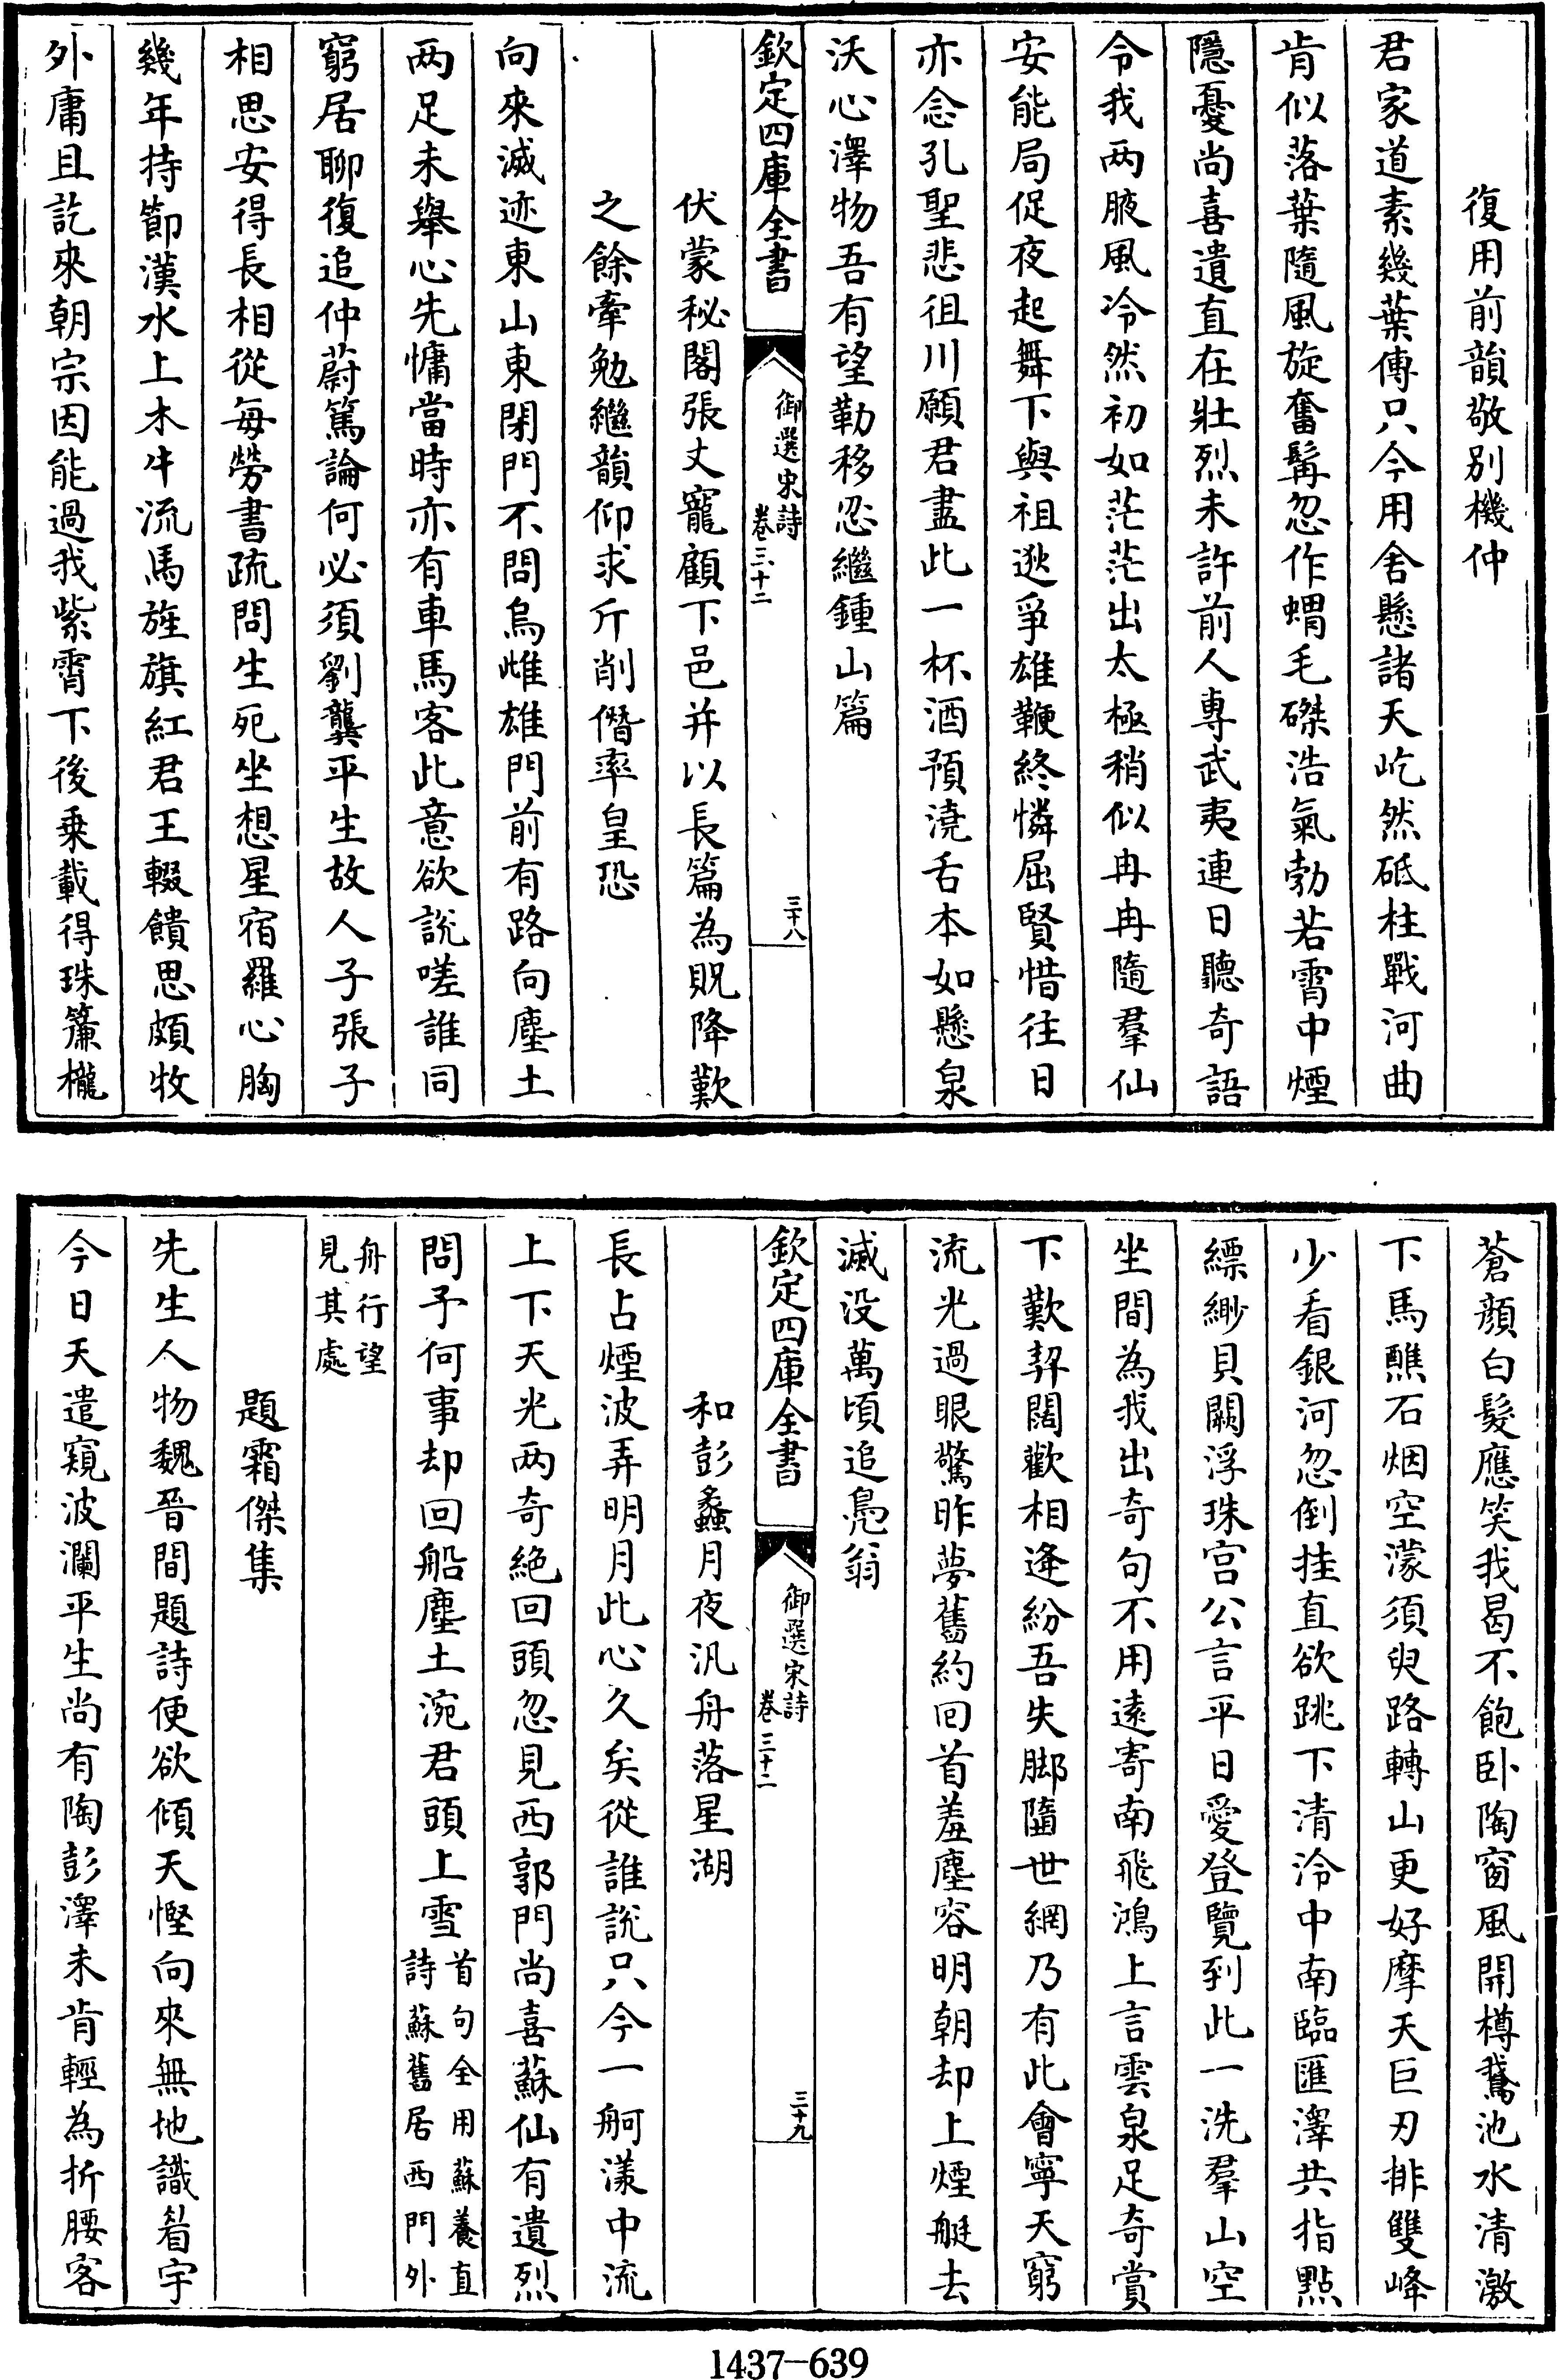 復用前韻敬别機仲
君家道素幾葉傳只今用舍懸諸天屹然砥柱戰河曲
肯似落葉隨風旋奮髯忽作蝟毛磔浩氣勃若霄中煙
隱憂尚喜遺直在壯烈未許前人專武夷連日聽奇語
令我两腋風冷然初如茫茫出太極稍似冉冉隨羣仙
安能局促夜起舞下與祖逖爭雄鞭終憐屈賢惜往日
亦念孔聖悲徂川願君盡此一杯酒預澆舌本如懸泉
沃心澤物吾有望勒移忍繼鍾山篇
欽定四庫全書
御選宋詩
卷三十二
三十八
伏蒙秘閣張丈寵顧下邑并以長篇為貺降歎
之餘牽勉繼韻仰求斤削僭率皇恐
向來滅迹東山東閉門不問烏雌雄門前有路向塵土
两足未舉心先慵當時亦有車馬客此意欲說嗟誰同
窮居聊復追仲蔚篤論何必須劉龔平生故人子張子
相思安得長相從每勞書疏問生死坐想星宿羅心胸
幾年持節漢水上木牛流馬旌旗紅君王輟饋思頗牧
外庸且訖來朝宗因能過我紫霄下後乗載得珠簾櫳
蒼顔白髮應笑我曷不飽卧陶窗風開樽鵞池水清激
下馬醮石烟空濛須臾路轉山更好摩天巨刃排雙峰
少看銀河忽倒挂直欲跳下清泠中南臨匯澤共指點
縹緲貝闕浮珠宫公言平日愛登覽到此一洗羣山空
坐間為我出奇句不用遠寄南飛鴻上言雲泉足奇賞
下歎契闊歡相逢紛吾失脚隨世網乃有此會寧天窮
流光過眼驚昨夢舊約回首羞塵容明朝却上煙艇去
滅没萬頃追鳧翁
欽定四庫全書
御選宋詩
卷三十二
三十九
和彭蠡月夜汎舟落星湖
長占煙波弄明月此心久矣從誰說只今一舸漾中流
上下天光两奇絶回頭忽見西郭門尚喜蘇仙有遺烈
問予何事却回船塵土涴君頭上雪首句全用蘇養直詩蘇舊居西門外
舟行望見其處
題霜傑集
先生人物魏晉間題詩便欲傾天慳向來無地識眉宇
今日天遣窺波瀾平生尚有陶彭澤未肯輕為折腰客
1437-639